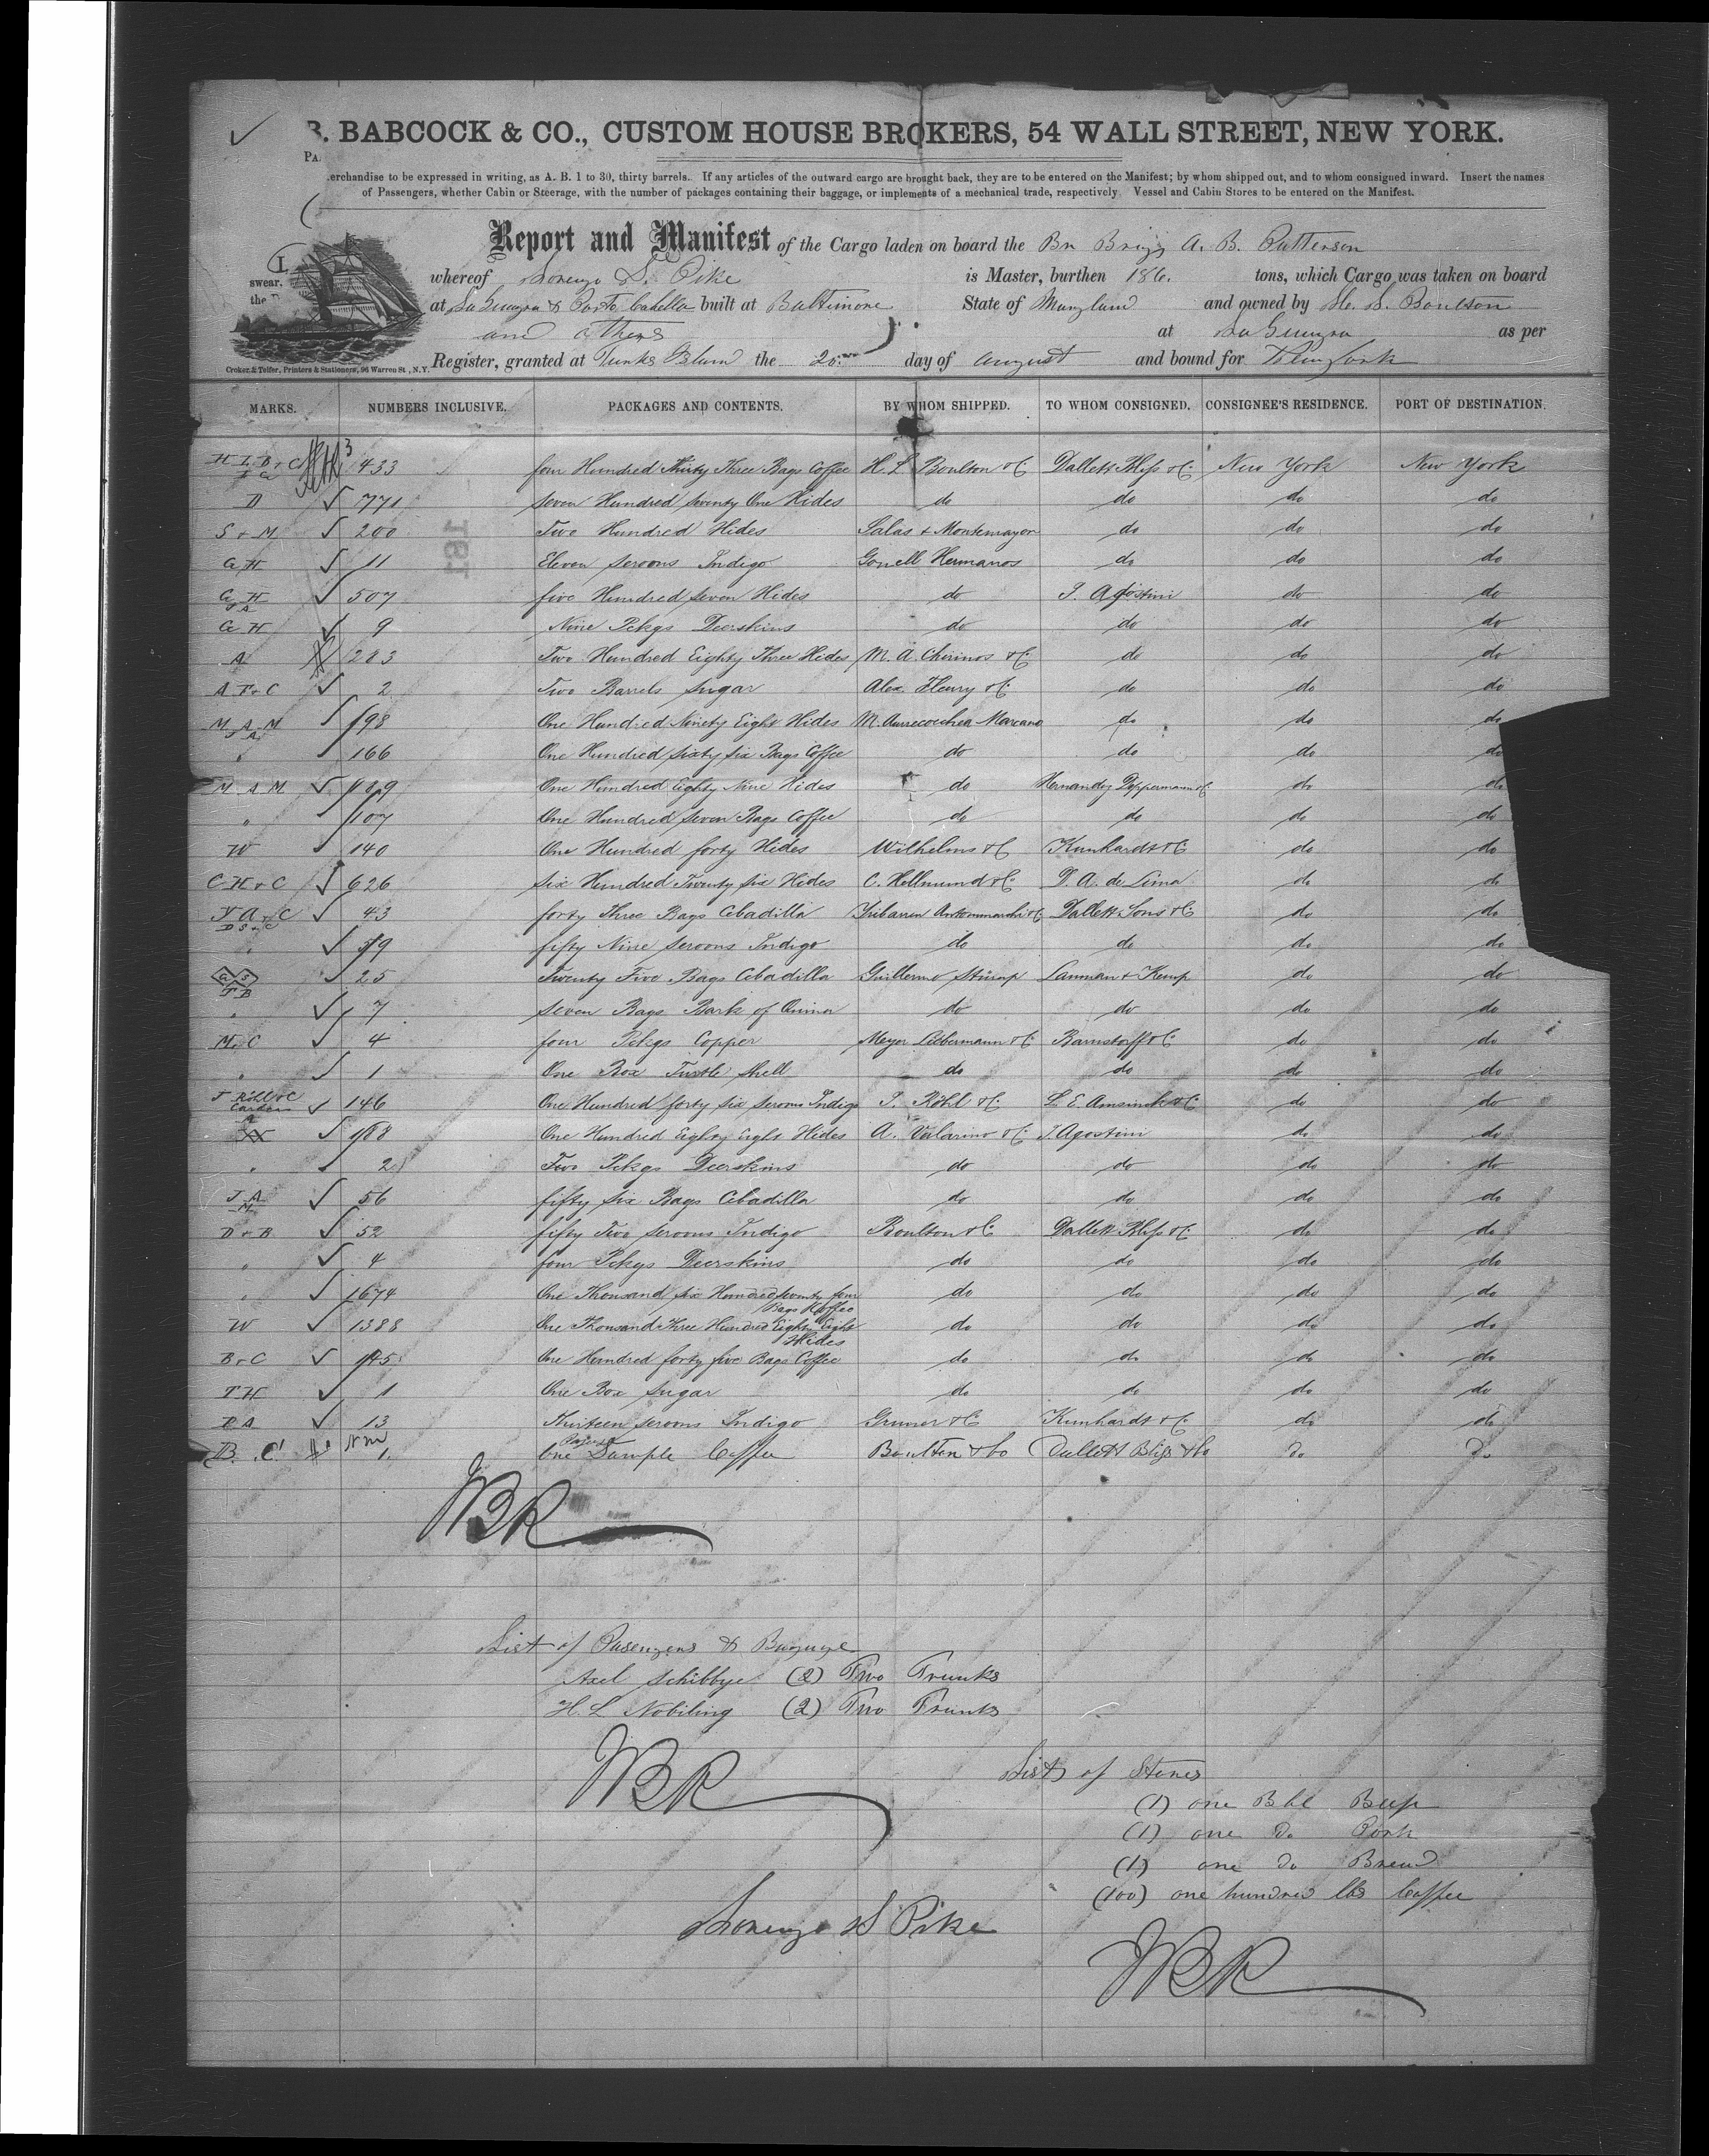 B. BABCOCK & CO., CUSTOM HOUSE BROKERS, 54 WALL STREET, NEW YORK.
PA
erchandise to be expressed in writing, as A. B. 1 to 30, thirty barrels. If any articles of the outward cargo are brought back, they are to be entered on the Manifest; by whom shipped out, and to whom consigned inward. Insert the names
of Passengers, whether Cabin or Steerage, with the number of packages containing their baggage, or implements of a mechanical trade, respectively Vessel and Cabin Stores to be entered on the Manifest.
Report and Manifest of the Cargo laden on board the Br Brig A. B. Patterson
I swear, the
whereof Lorenzo S. Pike is Master, burthen 186. tons, which Cargo was taken on board
at La Guayra & Porto Cabello built at Baltimore State of Maryland and owned by H. L. Boulton
and others at La Guayra as per
Register, granted at Turks Island the 25 day of August and bound for New York
Croker & Telfer, Printers & Stationers, 96 Warren St., N.Y.
MARKS. NUMBERS INCLUSIVE. PACKAGES AND CONTENTS. BY WHOM SHIPPED. TO WHOM CONSIGNED. CONSIGNEE'S RESIDENCE. PORT OF DESTINATION.
H L B & C 433 four Hundred Thirty Three Bags Coffee H. L Boulton & C Dallett Bliss & C New York New York
D 771 Seven Hundred Seventy One Hides do do do do
S & M 200 Two Hundred Hides Salas & Montemayor do do do
G H 11 Eleven Seroons Indigo Gonell Hermanos do do do
G H J A 507 five Hundred Seven Hides do J. Agostini do do
G H 9 Nine Pckgs Deerskins do do do do
A 283 Two Hundred Eighty Three Hides M. A. Chirinos & C do do do
A F & C 2 Two Barrels Sugar Alex Fleury & C do do do
M A M J A 198 One Hundred Ninety Eight Hides M. Aurrecoechea Marcano do do do
" 166 One Hundred Sixty Six Bags Coffee do do do do
M A M 189 One Hundred Eighty Nine Hides do Hernandez Deppermann & C do do
" 107 One Hundred Seven Bags Coffee do do do do
W 140 One Hundred forty Hides Wilhelms & C Kunhardt & C do do
C H & C 626 Six Hundred Twenty Six Hides C. Hellmund & C D. A. de Lima do do
Y A & C D S & C 43 forty Three Bags Cebadilla Yribarren Antommarchi & C Dallett Sons & C do do
" 59 fifty Nine Seroons Indigo do do do do
G S T B 25 Twenty Five Bags Cebadilla Guillermo Stürup Lanman & Kemp do do
" 7 Seven Bags Bark of Quina do do do do
M & C 4 four Pckgs Copper Meyer Liebermann & C Barnstorff & C do do
" 1 One Box Turtle Shell do do do do
J Röhl & C Cardens 146 One Hundred forty six Seroons Indigo J. Röhl & C L. E. Amsinck & C do do
188 One Hundred Eighty Eight Hides A. Valarino & C J. Agostini do do
" 2 Two Pckgs Deerskins do do do do
J A M 56 fifty Six Bags Cebadilla do do do do
D & B 52 fifty Two Seroons Indigo Boulton & C Dallett Bliss & C do do
" 4 four Pckgs Deerskins do do do do
" 1674 One Thousand six Hundred seventy four Bags Coffee do do do do
W 1388 One Thousand Three Hundred Eighty Eight Hides do do do do
B & C 145 One Hundred forty five Bags Coffee do do do do
T H 1 One Box Sugar do do do do
P A 13 Thirteen Seroons Indigo Gruner & C Kunhardt & C do do
B. C. 1 One Sample Coffee Boulton & Co Dallett Bliss & Co Do Do
List of Pasengers & Baguage
Axel Schibbye (2) Two Trunks
H. L Nobiling (2) Two Trunks
List of Stores
(1) one Bbl Beef
(1) one Do Pork
(1) one Do Bread
(100) one hundred lbs Coffee
Lorenzo S Pike